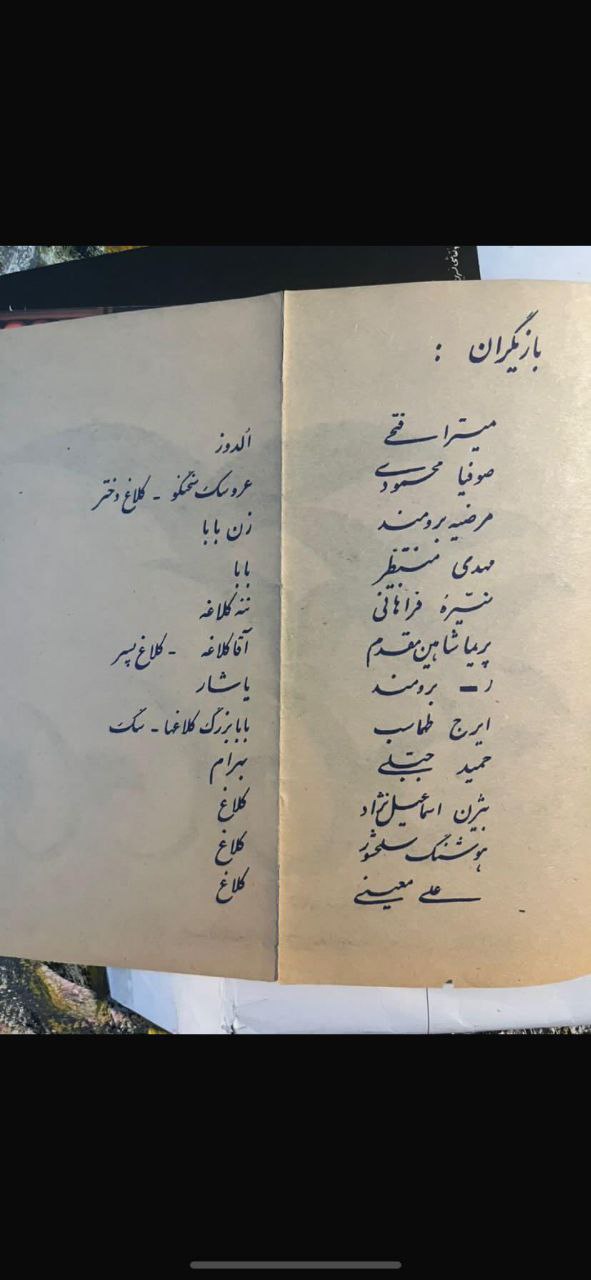 بازیگران :
میترا فتحی اُلدوز
صوفیا محمودی عروسک سخنگو - کلاغ دختر
مرضیه برومند زن بابا
مهدی منتظر بابا
منیژه فراهانی ننه کلاغه
پریما شاهین مقدم آقا کلاغه - کلاغ پسر
ر - برومند یاشار
ایرج طهماسب بابا بزرگ کلاغها - سگ
حمید جبلی بهرام
بیژن اسماعیل نژاد کلاغ
هوشنگ سلحشور کلاغ
علی معینی کلاغ